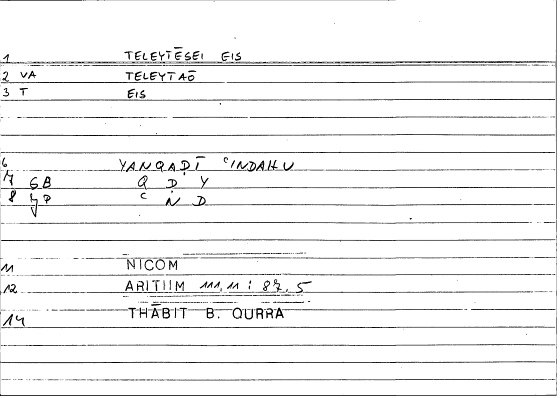 1 TELEYTĒSEI EIS
2 VA TELEYTAŌ
3 T EIS
6 YANQAḌĪ ʿINDAHU
7 GB Q Ḍ Y
8 ʿ N D
11 NICOM
12 ARITIIM 111.11 : 87.5
14 THĀBIT B. QURRA